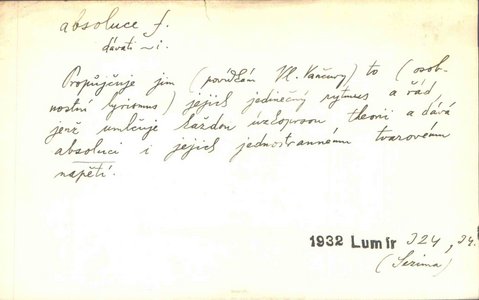 absoluce f.
dávati ~i.
Propůjčuje jim (povídkám Vl. Vančury) to (osob-
nostní lyrismus) jejich jedinečný rytmus a řád,
jenž umlčuje každou úzkoprsou theorii a dává
absoluci i jejich jednostrannému tvarovému
napětí.
1932 Lumír 324, 34.
(Sezima)